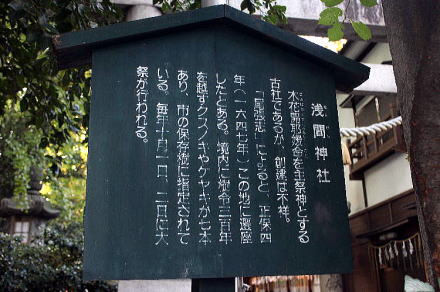 浅間神社
木花開耶姫命を主祭神とする
古社であるが、創建は不祥。
「尾張志」によると、正保四
年（一六四七年）この地に遷座
したとある。境内に樹令三百年
を越すクスノキやケヤキが七本
あり、市の保存樹に指定されて
いる。毎年十月一日、二日に大
祭が行われる。